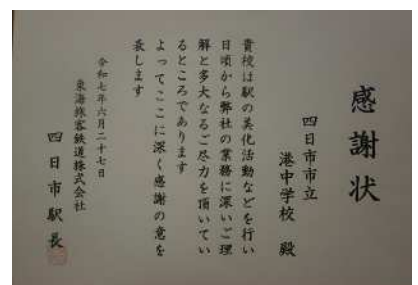 感謝状
四日市市立
港中学校 殿
貴校は駅の美化活動などを行い
日頃から弊社の業務に深いご理
解と多大なるご尽力を頂いてい
るところであります
よってここに深く感謝の意を
表します
令和七年六月二十七日
東海旅客鉄道株式会社
四日市駅長